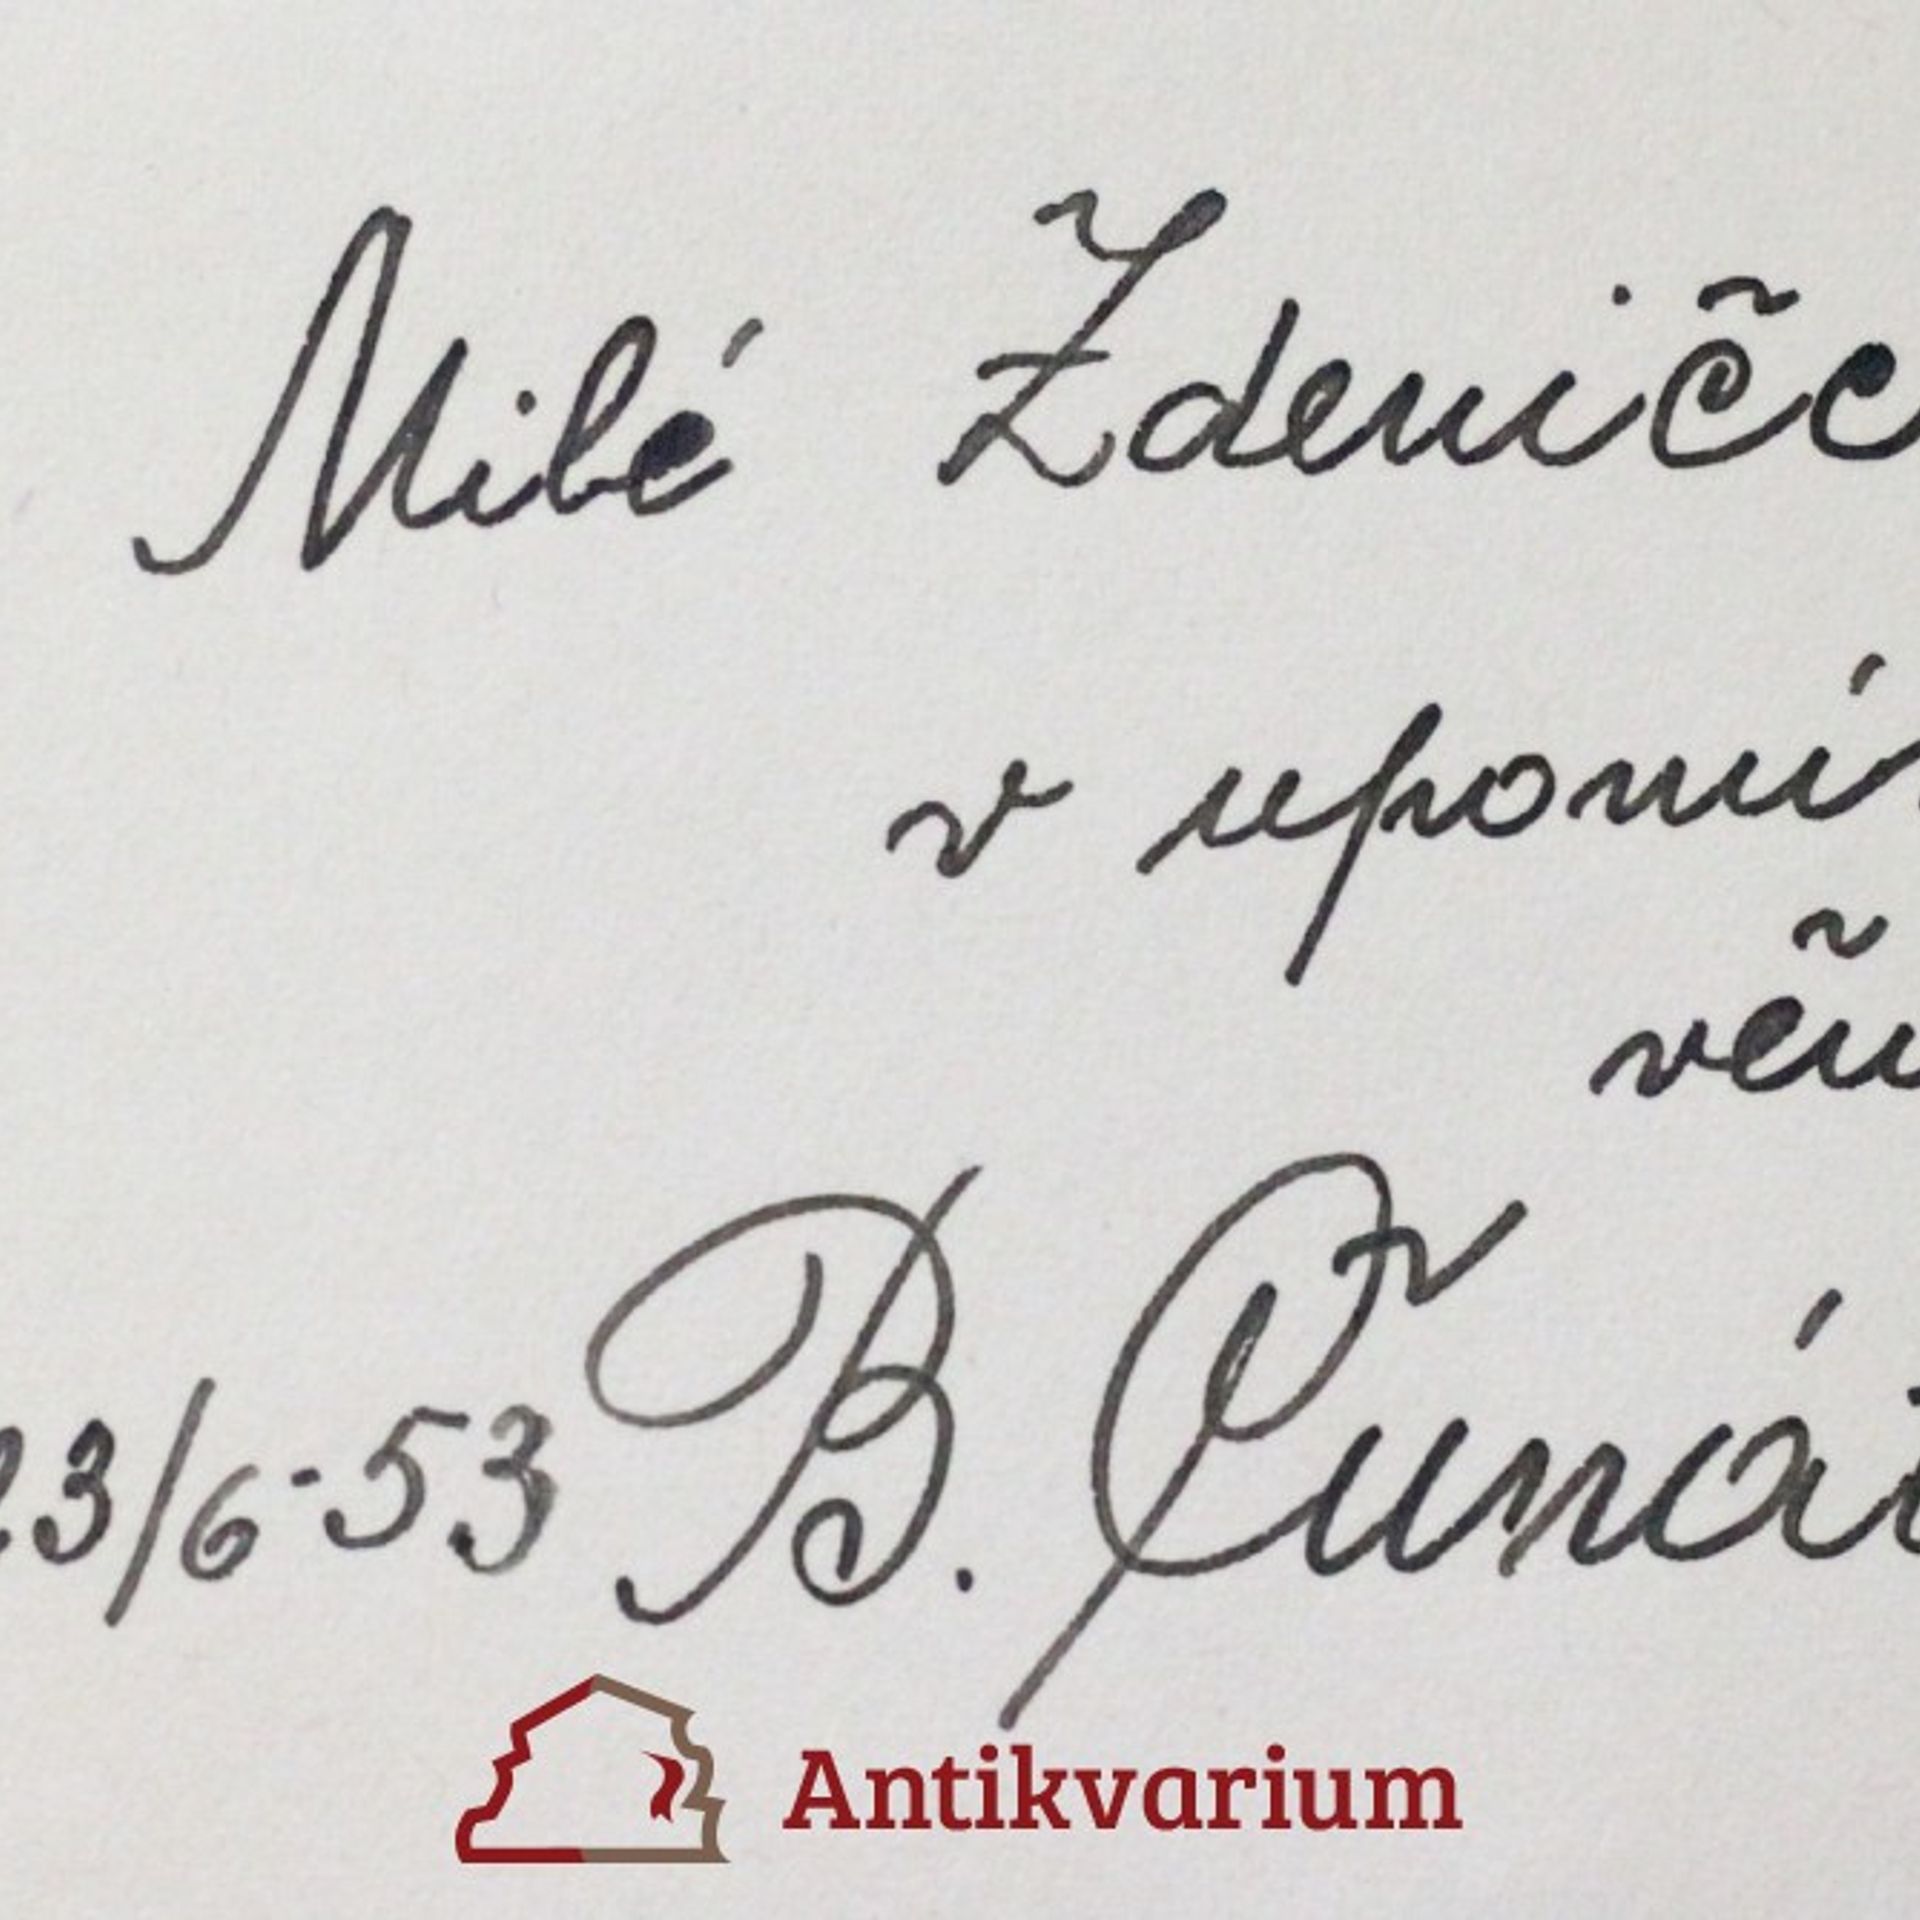 Milé Zdeničc
v upomí
věn
23/6-53 B. Čunát
Antikvarium